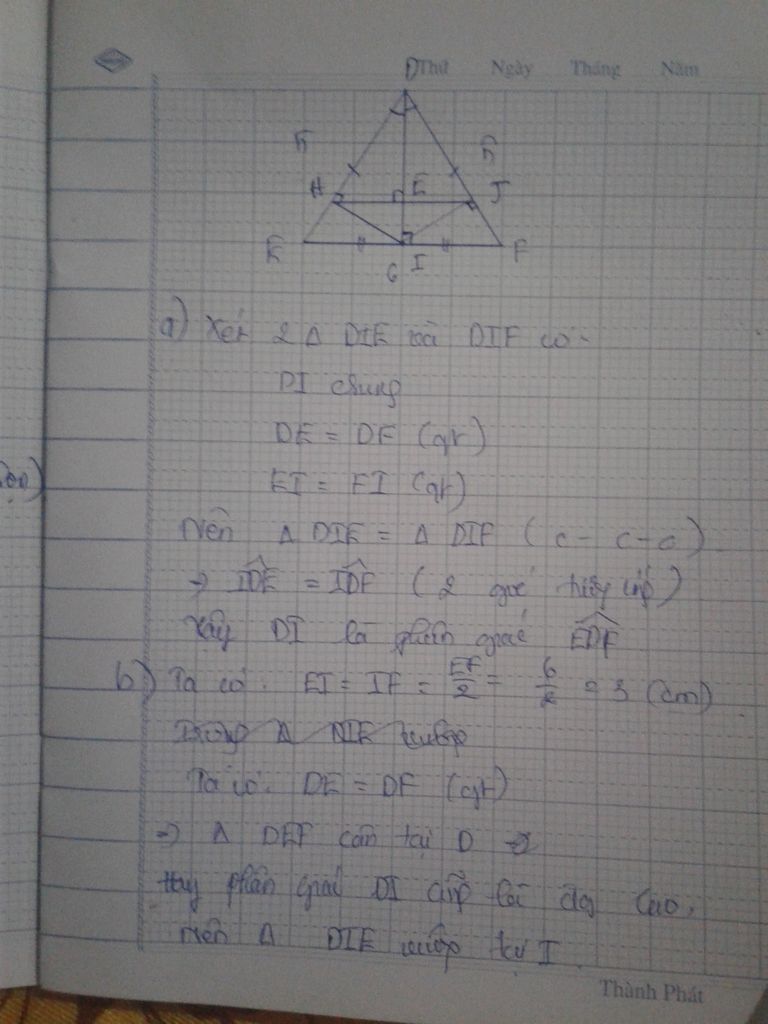 Thứ Ngày Tháng Năm
D
5 5
H E J
E F
6 I
a) Xét 2 Δ DIE và DIF có.
DI chung
DE = DF (gt)
EI = FI (gt)
Nên Δ DIE = Δ DIF (c - c - c)
⇒ IDE = IDF (2 góc)
Vậy DI là phân giác EDF
b) Ta có. EI = IF = EF/2 = 6/2 = 3 (cm)
Trong Δ DIE vuông
Ta có. DE = DF (gt)
⇒ Δ DEF cân tại D ⇒
Hay phân giác DI cũng là đg cao.
Nên Δ DIE vuông tại I
Thành Phát